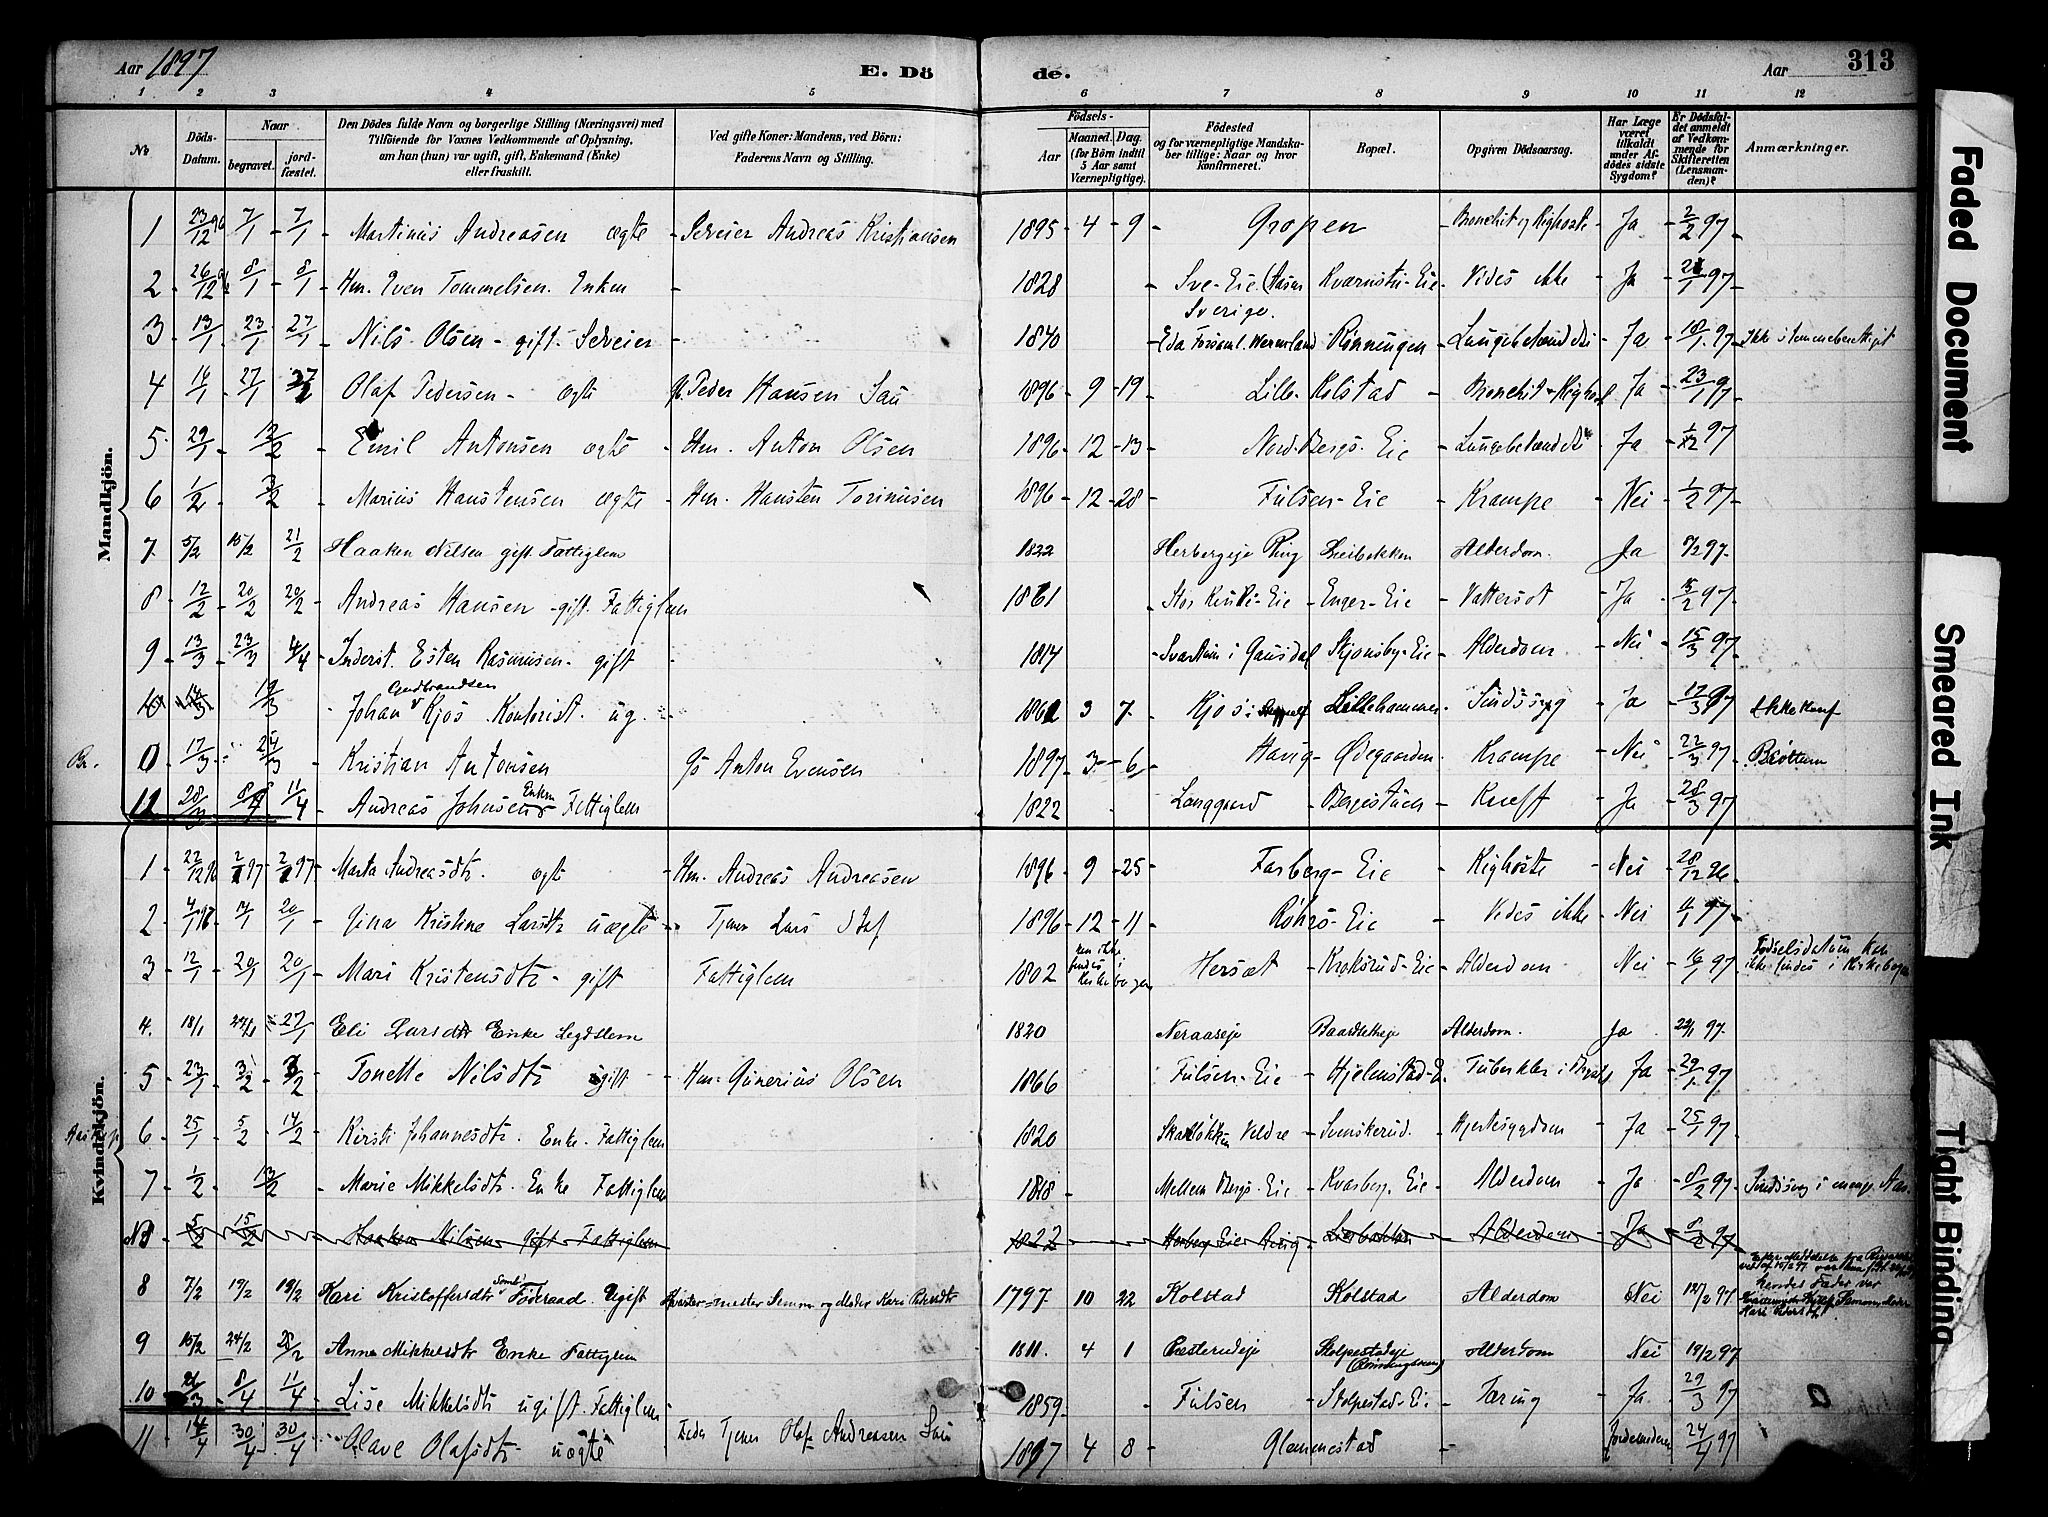 Aar 1897
E. Dö
de.
Aar
313
1 2 3 4 5 6 7 8 9 10 11 12
No
Döds-Datum.
Naar
begravet.
jord-fæstet.
Den Dödes fulde Navn og borgerlige Stilling (Næringsvei) med
Tilföiende for Voxnes Vedkommende af Oplysning,
om han (hun) var ugift, gift, Enkemand (Enke)
eller fraskilt.
Ved gifte Koner: Mandens, ved Börn:
Faderens Navn og Stilling.
Födsels-
Aar
Maaned. Dag.
(for Börn indtil 5 Aar samt Værnepligtige).
Födested
og for værnepligtige Mandska-
ber tillige: Naar og hvor
konfirmeret.
Bopæl.
Opgiven Dödsaarsag.
Har Læge været tilkaldt under Af-dödes sidste Sygdom?
Er Dödsfal-det anmeldt af Vedkom-mende for Skifteretten (Lensman-den)?
Anmærkninger.
Mandkjön.
1 - 23/12 96 7/1 - 7/1 - Martinus Andreasen ægte - Selveier Andreas Kristiansen 1895 - 4 - 9 - Gropen Bronchit og Kighoste - Ja - 2/2 97 -
2 - 26/12 96 8/1 - 8/1 - Hm. Even Tommelsen. Enkem - 1828 - Sve-Eie Kværnstu-Eie - Vides ikke - Ja 97 -
Sverige.
3 - 13/1 - 23/1 - 27/1 - Nils Olsen - gift Selveier - 1840 - Eda Forsaml. Wermland Rönningen - Lungebetændelse - Ja - 18/1 97 - Ikke stemmeberettiget
4 - 14/1 - 27/1 Olaf Pedersen - ægte Peder Hansen Sau 1896 - 9 - 19 - Lille-Kolstad - Bronchit - Kighoste Ja - 23/1 97
5 - 29/1 - 13/2 - Emil Antonsen ægte - Hm. Anton Olsen 1896 - 12 - 13 - Nord-Bergs-Eie - Lungebetændelse - Ja 97
6 - 1/2 - 13/2 - Marius Hanstensen ægte - Hm. Hansten Torinusen 1896 - 12 - 28 - Fulsen-Eie - Krampe - Nei - 1/2 97 -
7. 5/2 15/2 21/2 Haaken Nilsen gift Fattiglem 1822 Herbergeje Ring Alderdom. Ja 8/2 97.
8 - 12/2 - 20/2 20/2 - Andreas Hansen - gift Fattiglem 1861 Enger-Eie - Vattersot - Ja - 15/2 97 -
9 - 13/3 - 23/3 4/4 - Inderst. Esten Rasmusen - gift - 1817 - Svartum i Gausdal Skjönsby-Eie - Alderdom - Nei - 15/3 97 -
10 14/3 19/3 - Johan Gudbrandsen Kjos Kontorist. ug. - 1862 3 7 - Kjos i Lillehammer - Sindssyg - Ja - 17/3 97 - Ikke konf
Br. 17/3 24/3 - Kristian Antonsen Gs Anton Evensen 1897 - 3 - 6 - Haug - Ödegaarden - Krampe - Nei - 22/3 97 - Bröttum
28/3 8/4 11/4 - Andreas Johnsen Enkem Fattiglem 1822 - Langgaard - Bergestuen - Kræft - Ja - 28/3 97 -
Kvindekjön.
1 - 22/12 96 97 97 - Marta Andreasdtr. ægte - Hm. Andreas Andreasen 1896 - 9 - 25 - Farberg-Eie - Kighoste - Nei - 28/12 96
2 - 20/1 - Gina Kristine Larsdtr uægte - Tjener Lars Olsen 1896 - 12 - 11 - Röhrs-Eie - Vides ikke - Nei 97 -
3 - 12/1 - 20/1 20/1 - Mari Kristensdtr - gift Fattiglem 1802 kan ikke findes i Kirkebogen Hersæt - Kroksrud-Eie - Alderdom - Nei - 16/1 97 - Födselsdatum kan ikke findes i Kirkebogen
4. 18/1 27/1 Eli Larsdtr Enke Legdslem 1820 Neraaseje Alderdom. Ja 97.
5 - 23/1 - 3/2 Tonette Nilsdtr ugift - Hm. Gunerius Olsen 1866 - Fulsen-Eie - Hjelmstad-E. Ja - 29/1 97 -
6 - 25/1 - 5/2 - 14/2 - Kirsti Johannesdtr. Enke. Fattiglem 1820 Veldre - Svenskerud. - Hjertesygdom - Ja - 25/1 97 -
7 - 1/2 - 13/2 - Marie Mikkelsdtr. Enke Fattiglem 1818 - Mellem Bergs-Eie - Kvarberg-Eie - Alderdom - Ja - 8/2 97 - Sindssyg i mange Aar.
5/2 15/2 Haaken Nilsen gift Fattiglem 1822 Herberg Eie Ring Alderdom - Ja 97
8 7/2 19/2 19/2 Kari Kristoffersdtr Föderaad. Ugift 1797. 10 22 Kolstad Kolstad Alderdom Nei 12/2 97.
9 15/2 24/2 28/2 Anna Mikkelsdtr Enke Fattiglem 1811. 4 1 Stolpestadeje Alderdom Nei 19/2 97
10 8/4 11/4 - Lise Mikkelsdtr ugift. Fattiglem - 1859 - Fulsen - Stolpestad-Eie - Tæring - Ja - 29/3 97
11 14/4 30/4 30/4 Olave Olafsdtr uægte Tjener Olaf Andreasen Sau 1897 - 4 8 - Glemmestad - Jordemoderen 24/4 97
Faded Document
Smeared Ink
Tight Binding